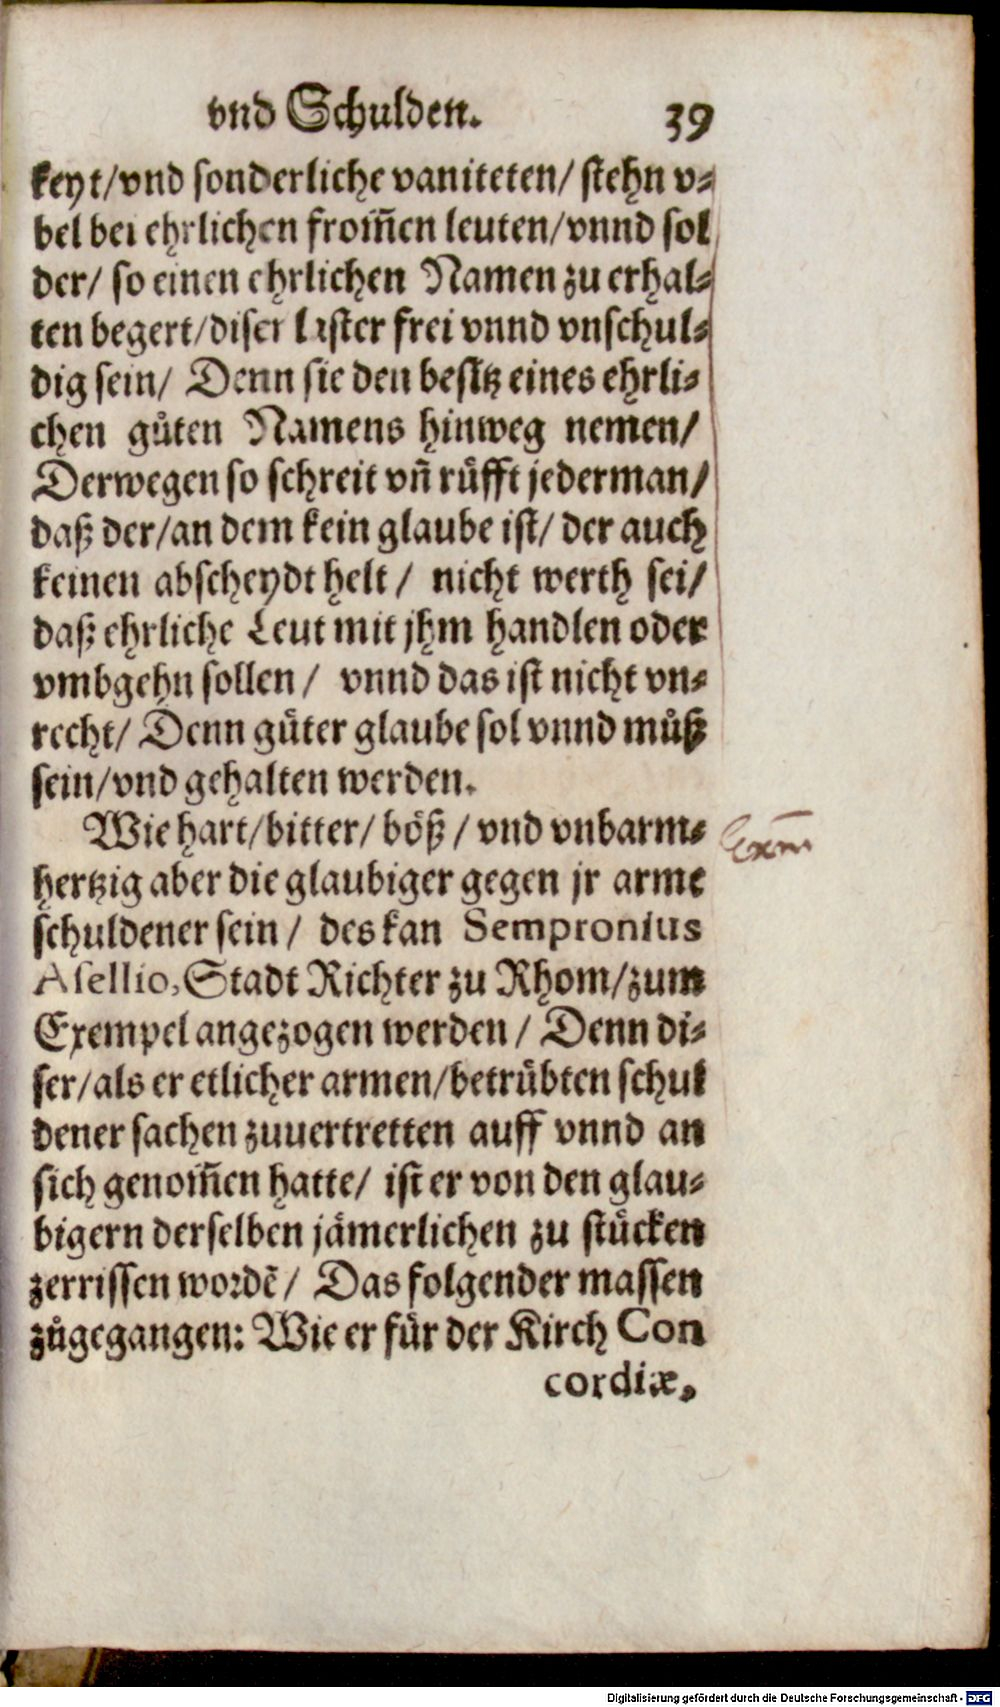 vnd Schulden. 39
keyt/vnd sonderliche vaniteten/ stehn v⸗
bel bei ehrlichen from̃en leuten/vnnd sol
der/ so einen ehrlichen Namen zu erhal⸗
ten begert/diser laster frei vnnd vnschul⸗
dig sein/ Denn sie den besitz eines ehrli⸗
chen gůten Namens hinweg nemen/
Derwegen so schreit vñ růfft jederman/
daß der/an dem kein glaube ist/ der auch
keinen abscheydt helt / nicht werth sei/
daß ehrliche Leut mit jhm handlen oder
vmbgehn sollen / vnnd das ist nicht vn⸗
recht/ Denn gůter glaube sol vnnd můß
sein/vnd gehalten werden.
Wie hart/bitter/ böß / vnd vnbarm⸗
hertzig aber die glaubiger gegen jr arme
schuldener sein / des kan Sempronius
Asellio, Stadt Richter zu Rhom/zum
Exempel angezogen werden / Denn di⸗
ser/als er etlicher armen/betrübten schul
dener sachen zuuertretten auff vnnd an
sich genom̃en hatte/ ist er von den glau⸗
bigern derselben jämerlichen zu stücken
zerrissen wordē/ Das folgender massen
zůgegangen: Wie er für der Kirch Con
cordiæ,
Exm̄
Digitalisierung gefördert durch die Deutsche Forschungsgemeinschaft - DFG